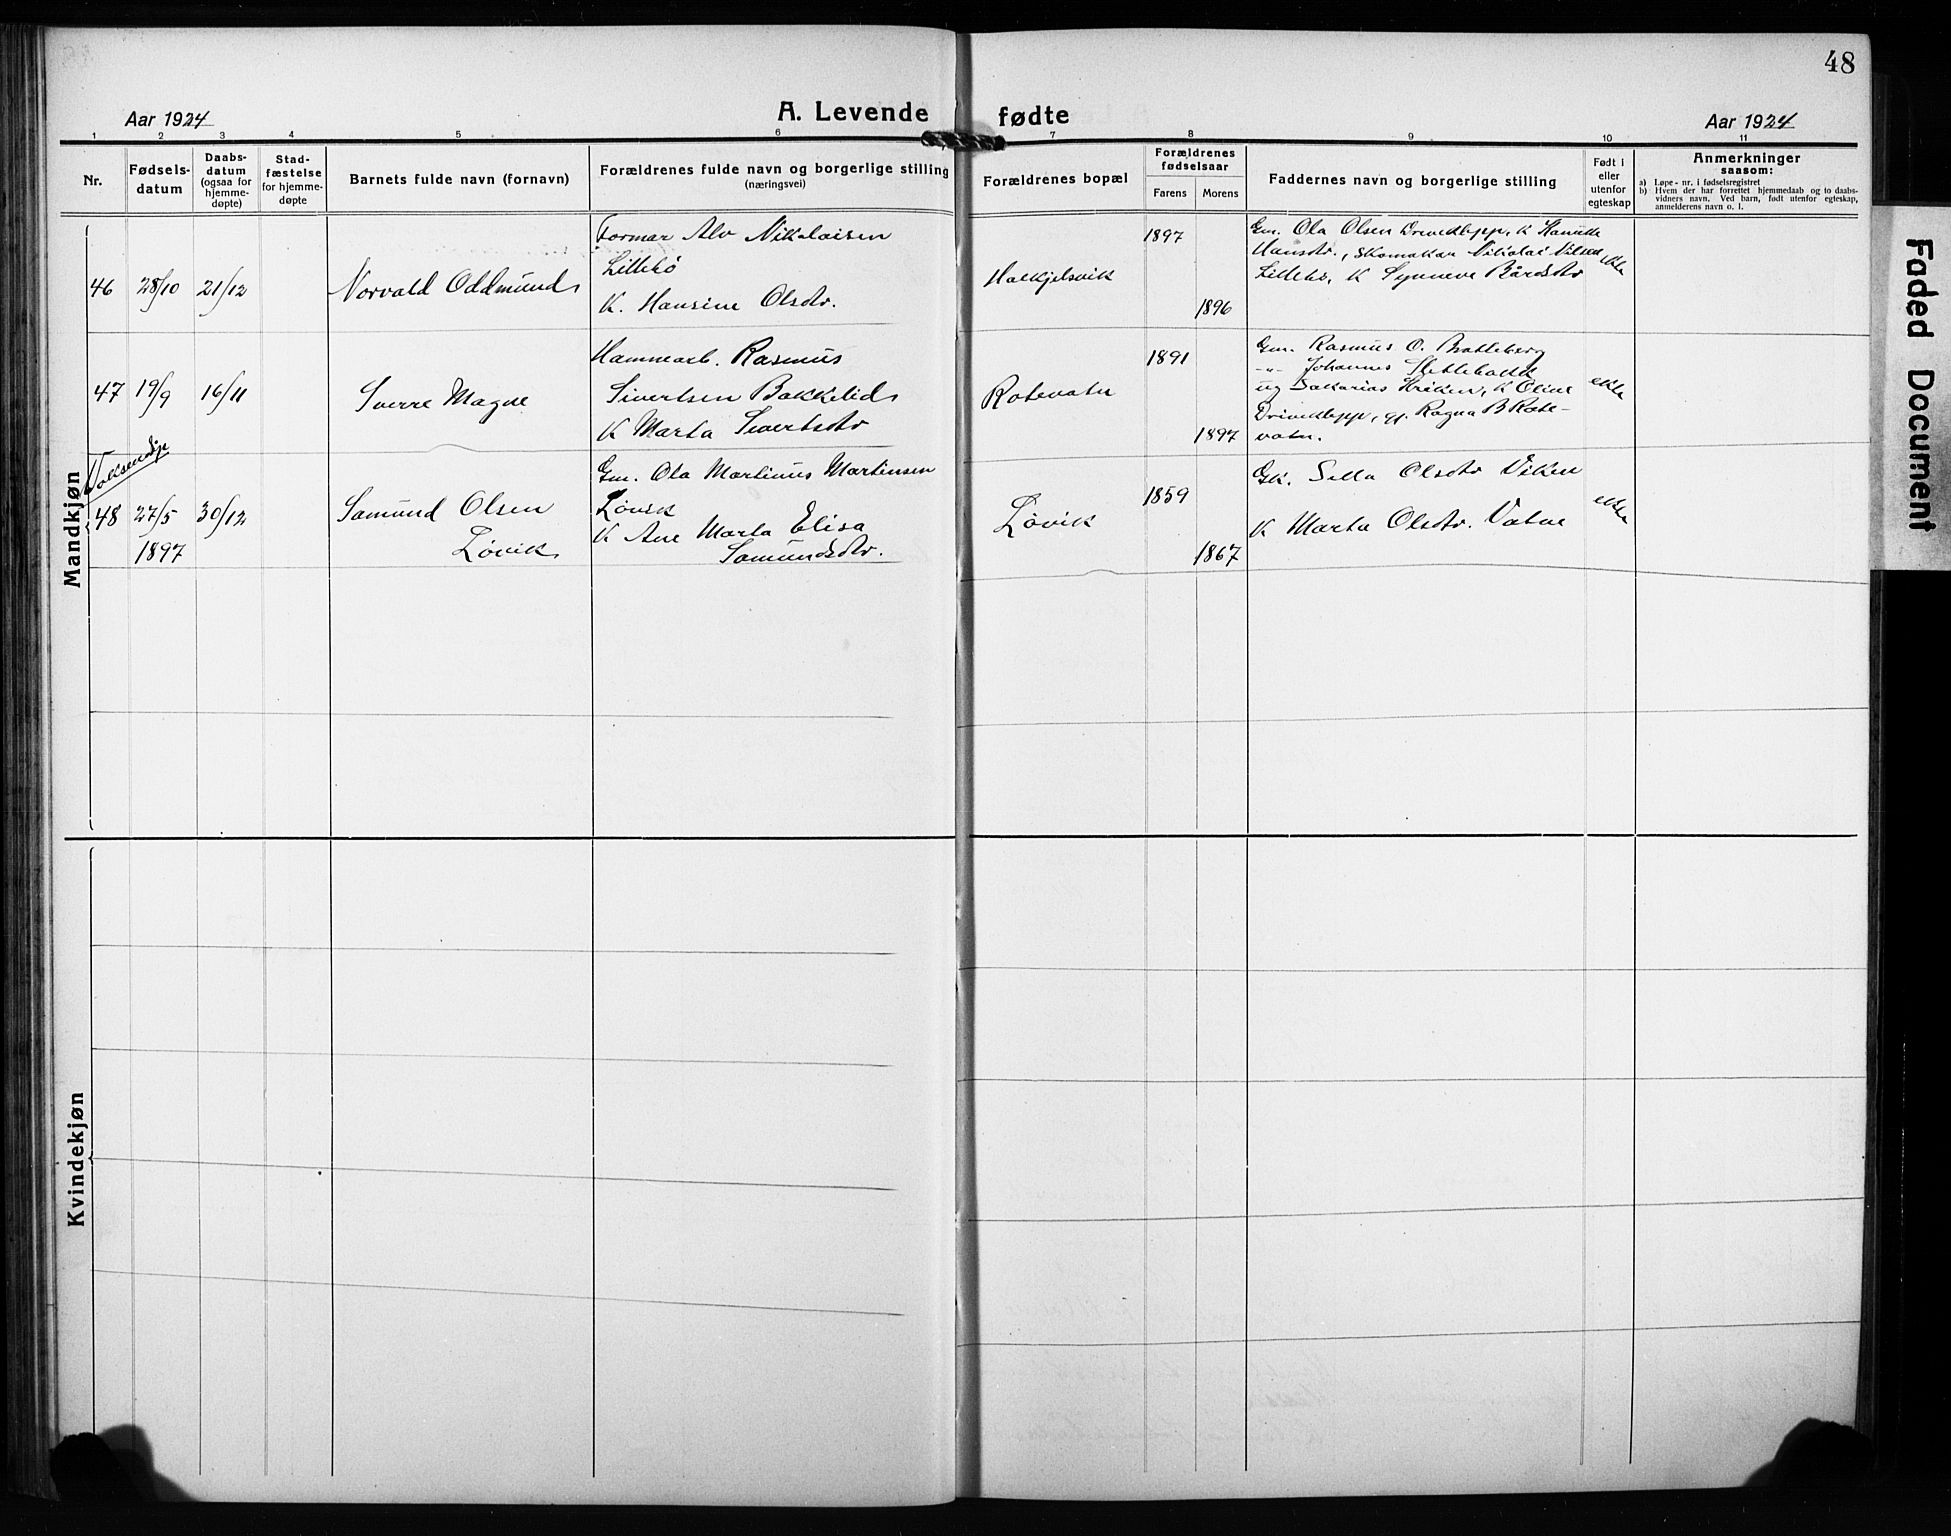 48
Aar 1924
A. Levende fødte
Aar 1924
1 2 3 4 5 6 7 8 9 10 11
Nr.
Fødsels-
datum
Daabs-
datum
(ogsaa for
hjemme-
døpte)
Stad-
fæstelse
for hjemme-
døpte
Barnets fulde navn (fornavn)
Forældrenes fulde navn og borgerlige stilling
(næringsvei)
Forældrenes bopæl
Forældrenes
fødselsaar
Farens Morens
Faddernes navn og borgerlige stilling
Født i
eller
utenfor
egteskap
Anmerkninger
saasom:
a) Løpe-nr. i fødselsregistret
b) Hvem der har forrettet hjemmedaab og to daabs-
vidners navn. Ved barn, født utenfor egteskap,
anmelderens navn o. l.
Mandkjøn
46 28/10 21/12
Norvald Oddmund
Formar Alv Nikolaisen
Lillebö
K. Hansine Olsdtr.
1897
1896
Gm. Ola Olsen Drivedlepp, K
Hansdtr., Skomakar Nikolai Nilsen
Lillebö, K Synneve Bårdsdtr
ekte
47 19/9 16/11
Sverre Magne
Rasmus
Sivertsen Bakkelid
K Marta Sivertsdtr
Rotevatn
1891
1897
Gm. Rasmus O. Bratteberg
-"- Johannes
og Sakarias K Oline
Drivedlepp, gj. Ragna B Rote-
vatn.
ekte
Voksendåp
48 27/5 30/12
1897
Samund Olsen
Løvik
Gm. Ola Martinus Martinsen
Løvik
K Ane Marta Elisa
Samundsdtr.
Løvik
1859
1867
Gk. Sella Olsdtr Viken
K Marta Olsdtr. Vatne
ekte
Kvindekjøn
Faded Document